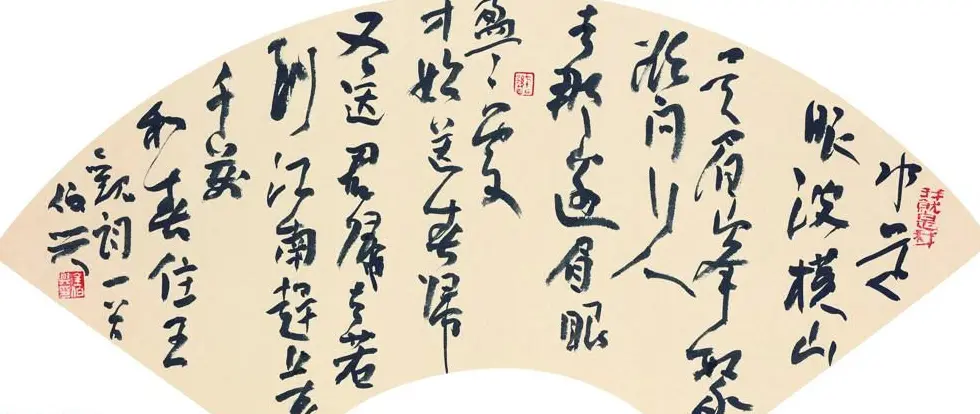 水是
眼波横山
是眉峰聚
欲问行人
去那边眉眼
盈々处
才始送春歸
又送君歸去若
到江南趕上春
千萬
和春住王
觀詞一首
伯